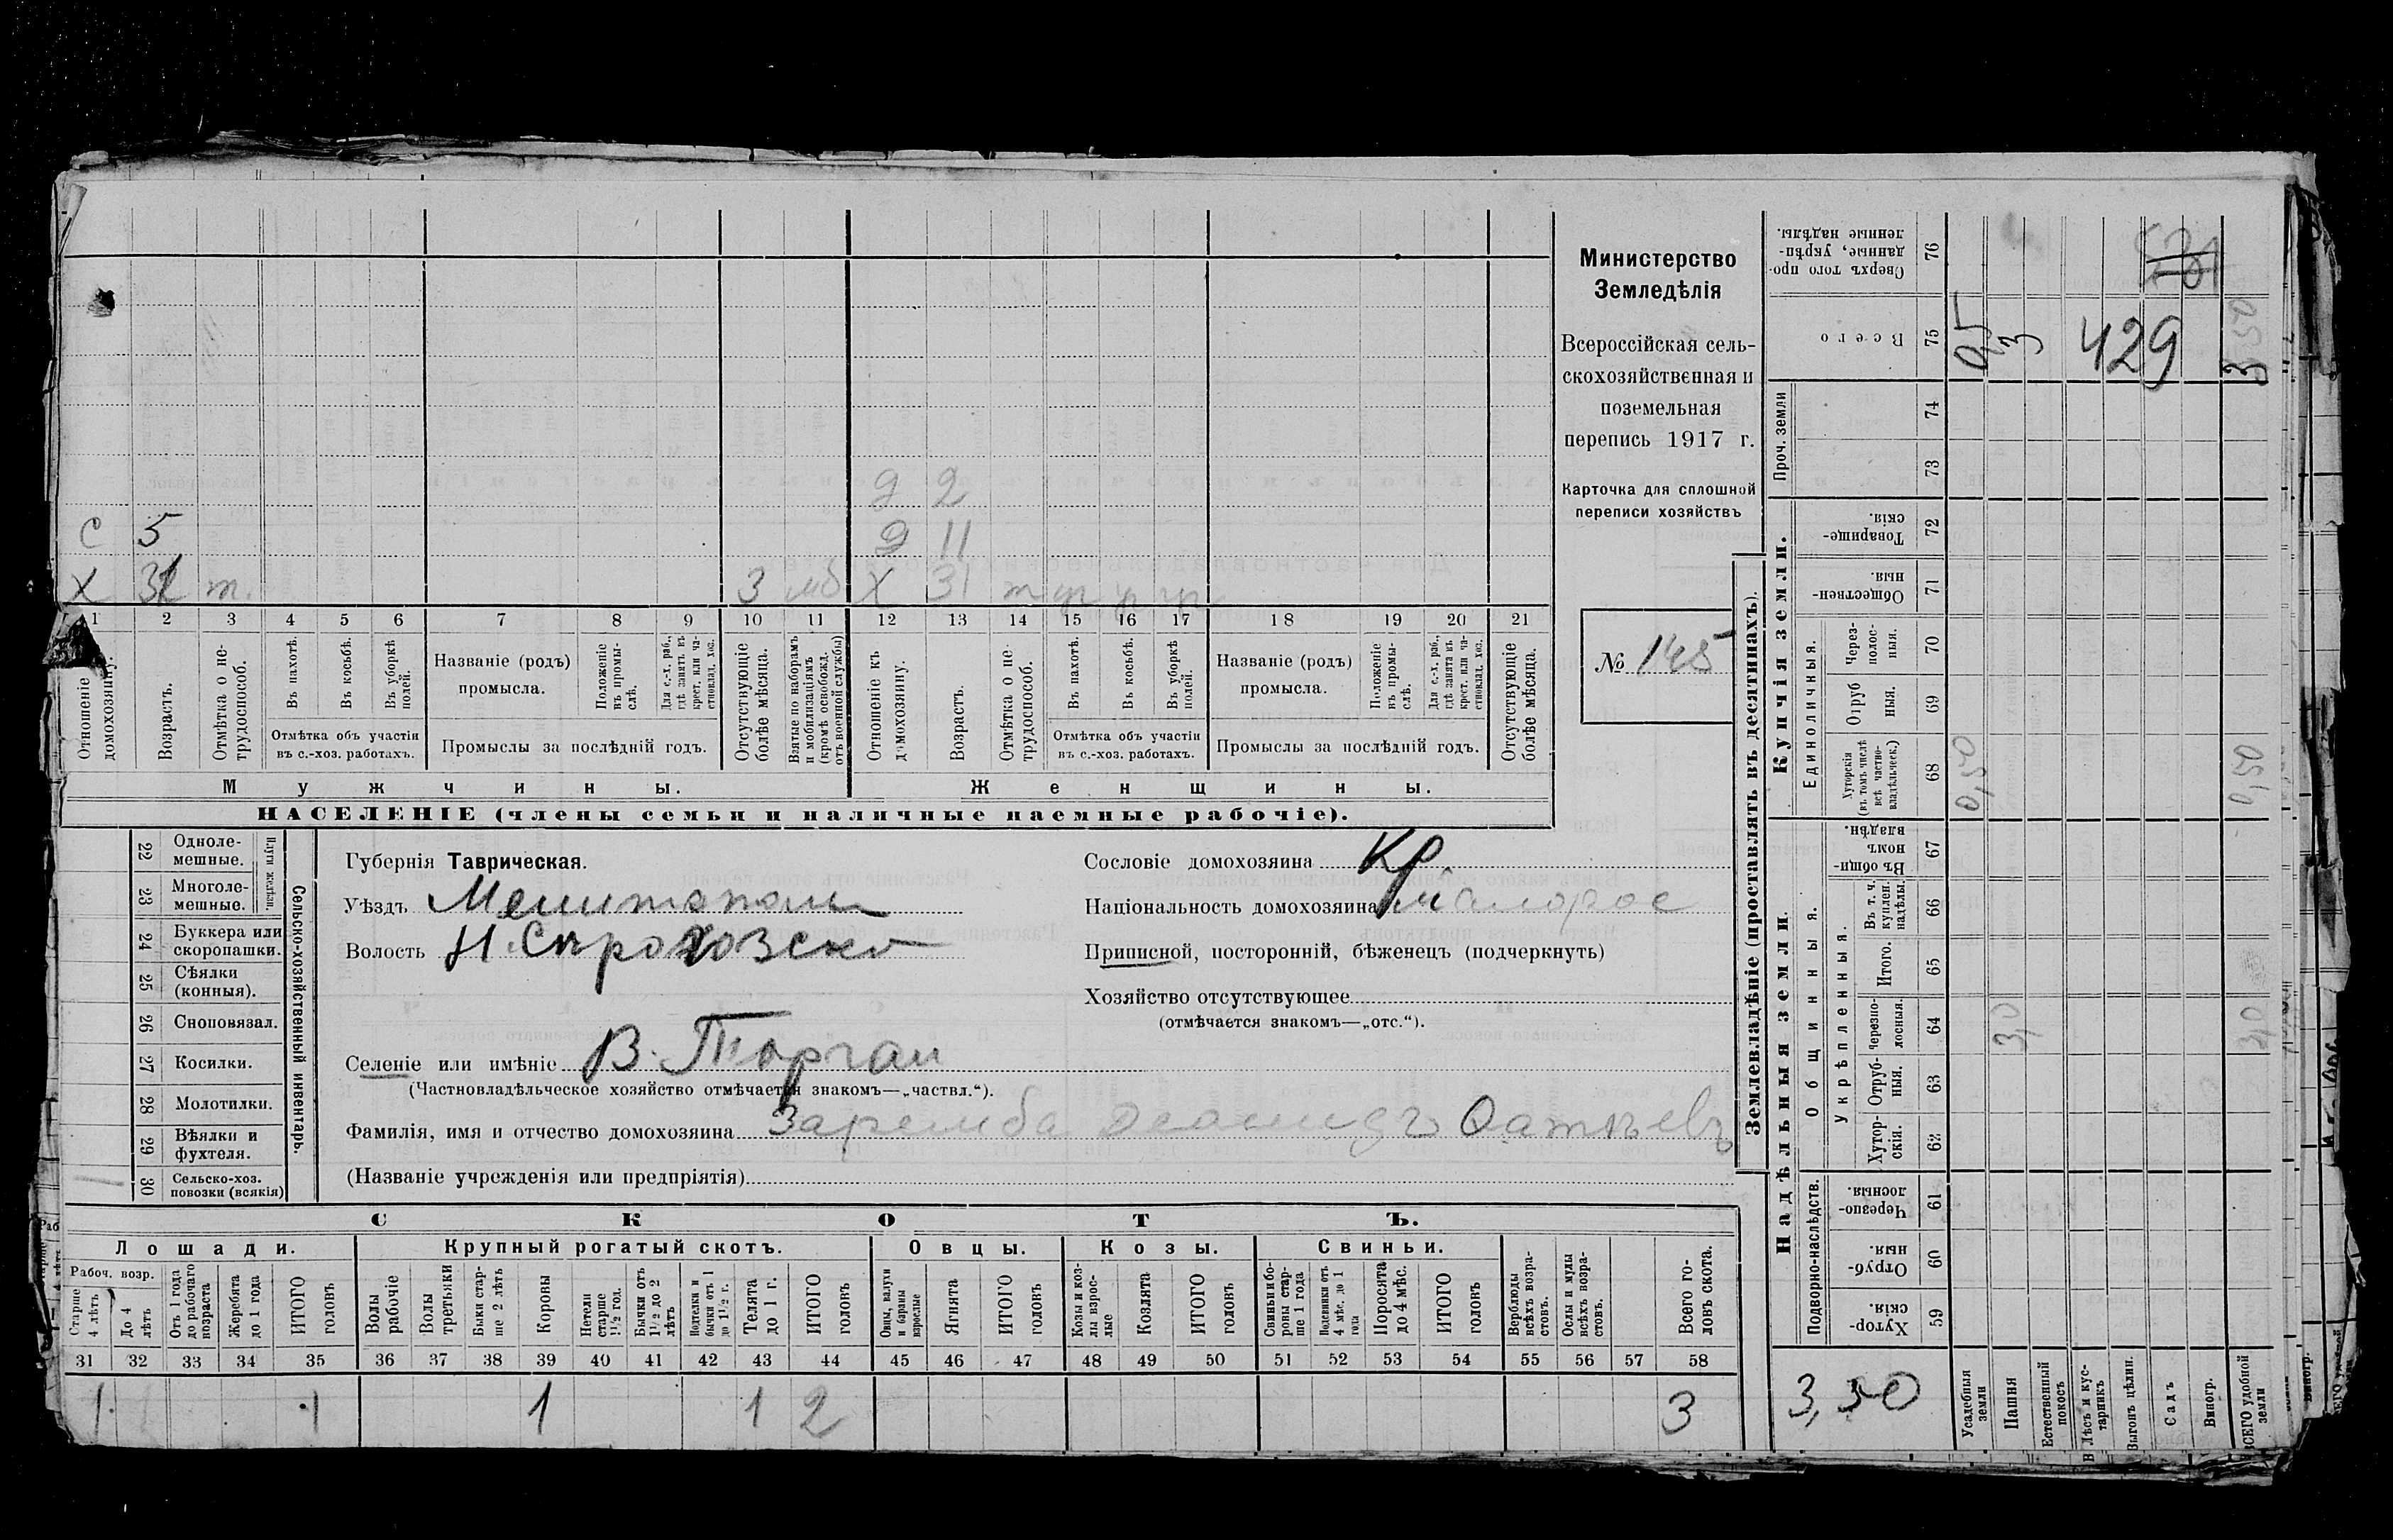 д 2
с 5 д 11
х т. 3 мб х 31 т
1 2 3 4 5 6 7 8 9 10 11 12 13 14 15 16 17 18 19 20 21
Отношеніе къ домохозяину.
Возрастъ.
Отмѣтка о не-трудоспособ.
Въ пахотѣ.
Въ косьбѣ.
Въ уборкѣ полей.
Отмѣтка объ участіи
въ с.-хоз. работахъ.
Названіе (родъ)
промысла.
Положеніе въ промы-слѣ.
Для с.-х. раб., гдѣ занятъ въ крест. или ча-стновлад. хоз.
Промыслы за послѣдній годъ.
Отсутствующіе болѣе мѣсяца.
Взятые по наборамъ и мобилизаціямъ (кромѣ освобожд. отъ военной службы)
Отношеніе къ домохозяину.
Возрастъ.
Отмѣтка о не-трудоспособ.
Въ пахотѣ.
Въ косьбѣ.
Въ уборкѣ полей.
Отмѣтка объ участіи
въ с.-хоз. работахъ.
Названіе (родъ)
промысла.
Положеніе въ промы-слѣ.
Для с.-х. раб., гдѣ занята въ крест. или ча-стновлад. хоз.
Промыслы за послѣдній годъ.
Отсутствующіе болѣе мѣсяца.
Мужчины. Женщины.
НАСЕЛЕНІЕ (члены семьи и наличные наемные рабочіе).
Министерство
Земледѣлія
Всероссійская сель-
скохозяйственная и
поземельная
перепись 1917 г.
Карточка для сплошной
переписи хозяйствъ
№ 145
22 Одноле-мешные.
23 Многоле-мешные.
24 Буккера или скоропашки.
25 Сѣялки (конныя).
26 Сноповязал.
27 Косилки.
28 Молотилки.
29 Вѣялки и фухтеля.
30 Сельско-хоз. повозки (всякія)
Сельско-хозяйственный инвентарь.
Губернія Таврическая.
Уѣздъ Мелитополь
Волость
Селеніе или имѣніе В. Торгаи
(Частновладѣльческое хозяйство отмѣчается знакомъ—„частвл.“).
Фамилія, имя и отчество домохозяина Заремба
(Названіе учрежденія или предпріятія)
Сословіе домохозяина Кр
Національность домохозяина малорос
Приписной, посторонній, бѣженецъ (подчеркнуть)
Хозяйство отсутствующее
(отмѣчается знакомъ—„отс.“).
СКОТЪ.
Лошади. Крупный рогатый скотъ. Овцы. Козы. Свиньи.
Рабоч. возр.
Старше 4 лѣтъ
До 4 лѣтъ
Отъ 1 года до рабочаго возраста
Жеребята до 1 года
ИТОГО головъ
Волы рабочіе
Волы третьяки
Быки стар-ше 2 лѣтъ
Коровы
Нетели старше 1½ год.
Бычки отъ 1½ до 2 лѣтъ
Подтелки и бычки отъ 1 до 1½ г.
Телята до 1 г.
ИТОГО головъ
Овцы, валухи и бараны взрослые
Ягнята
ИТОГО головъ
Козы и коз-лы взрос-лые
Козлята
ИТОГО головъ
Свиньи и бо-ровы стар-ше 1 года
Подсвинки отъ 4 мѣс. до 1 года
Поросята до 4 мѣс.
ИТОГО головъ
Верблюды всѣхъ возра-стовъ.
Ослы и мулы всѣхъ возра-стовъ.
Всего го-ловъ скота.
31 32 33 34 35 36 37 38 39 40 41 42 43 44 45 46 47 48 49 50 51 52 53 54 55 56 57 58
1 1 1 1 2 3
Землевладѣніе (проставлять въ десятинахъ).
Купчія земли.
Надѣльныя земли.
Сверхъ того про-данные, укрѣп-ленные надѣлы. 76
Всего 75 0,5 3 429 3,50
Проч. земли 74 73
Товарище-скія. 72
Обществен-ныя. 71
Единоличныя.
Через-полос-ныя. 70
Отруб ныя. 69
Хуторскія (въ томъ числѣ всѣ частно-владѣльческ.) 68 0,50 0,50
Общинныя.
Въ общи-номъ владѣн. 67
Укрѣпленныя.
Въ т. ч. куплен. надѣлы. 66
Итого. 65
Черезпо-лосныя. 64 3,0 3,0
Отруб-ныя. 63
Хутор-скія. 62
Подворно-наслѣдств.
Черезпо-лосныя. 61
Отруб-ныя. 60
Хутор-скія. 59
3,50
Усадебныя земли
Пашня
Естественный покосъ
Лѣсъ и кус-тарникъ
Выгонъ цѣлин.
Садъ
Виногр.
ВСЕГО удобной земли